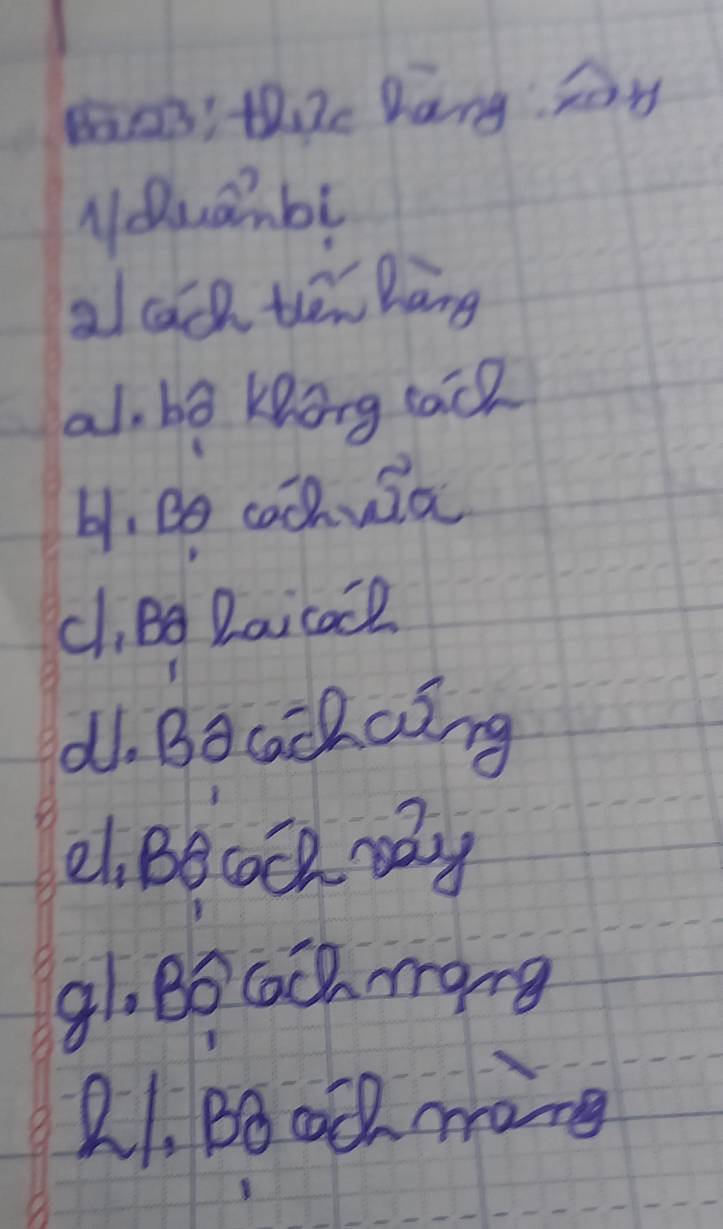 Bài 23: thực hàng: xây
1/ chuẩn bị
2/ cách tiến hàng
a/. bộ không cách
b/. Bộ cách vữa
c/. Bộ hai cách
d/. Bộ cách cứng
e/. Bộ cách vảy
g/. Bộ cách mạng
h/. Bộ cách màng